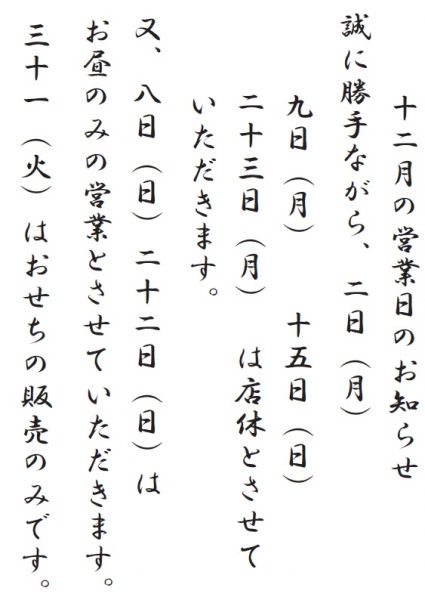 十二月の営業日のお知らせ
誠に勝手ながら、二日（月）
九日（月）　十五日（日）
二十三日（月）　は店休とさせて
いただきます。
又、八日（日）二十二日（日）は
お昼のみの営業とさせていただきます。
三十一（火）はおせちの販売のみです。